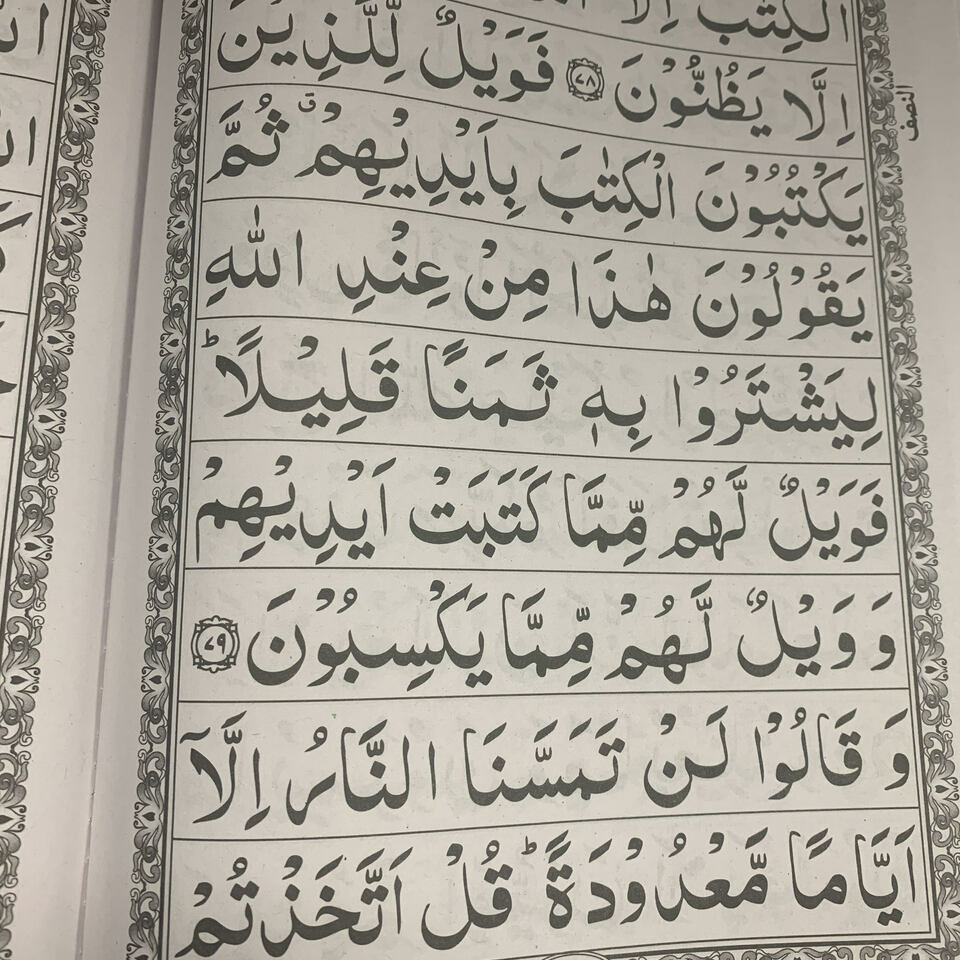 الْكِتٰبَ اِلَّاۤ
اِلَّا يَظُنُّوْنَ ﴿۷۸﴾ فَوَيْلٌ لِّلَّذِيْنَ
يَكْتُبُوْنَ الْكِتٰبَ بِاَيْدِيْهِمْ ۗ ثُمَّ
يَقُوْلُوْنَ هٰذَا مِنْ عِنْدِ اللّٰهِ
لِيَشْتَرُوْا بِهٖ ثَمَنًا قَلِيْلًا ؕ
فَوَيْلٌ لَّهُمْ مِّمَّا كَتَبَتْ اَيْدِيْهِمْ
وَ وَيْلٌ لَّهُمْ مِّمَّا يَكْسِبُوْنَ ﴿۷۹﴾
وَ قَالُوْا لَنْ تَمَسَّنَا النَّارُ اِلَّاۤ
اَيَّامًا مَّعْدُوْدَةً ؕ قُلْ اَتَّخَذْتُمْ
النصف